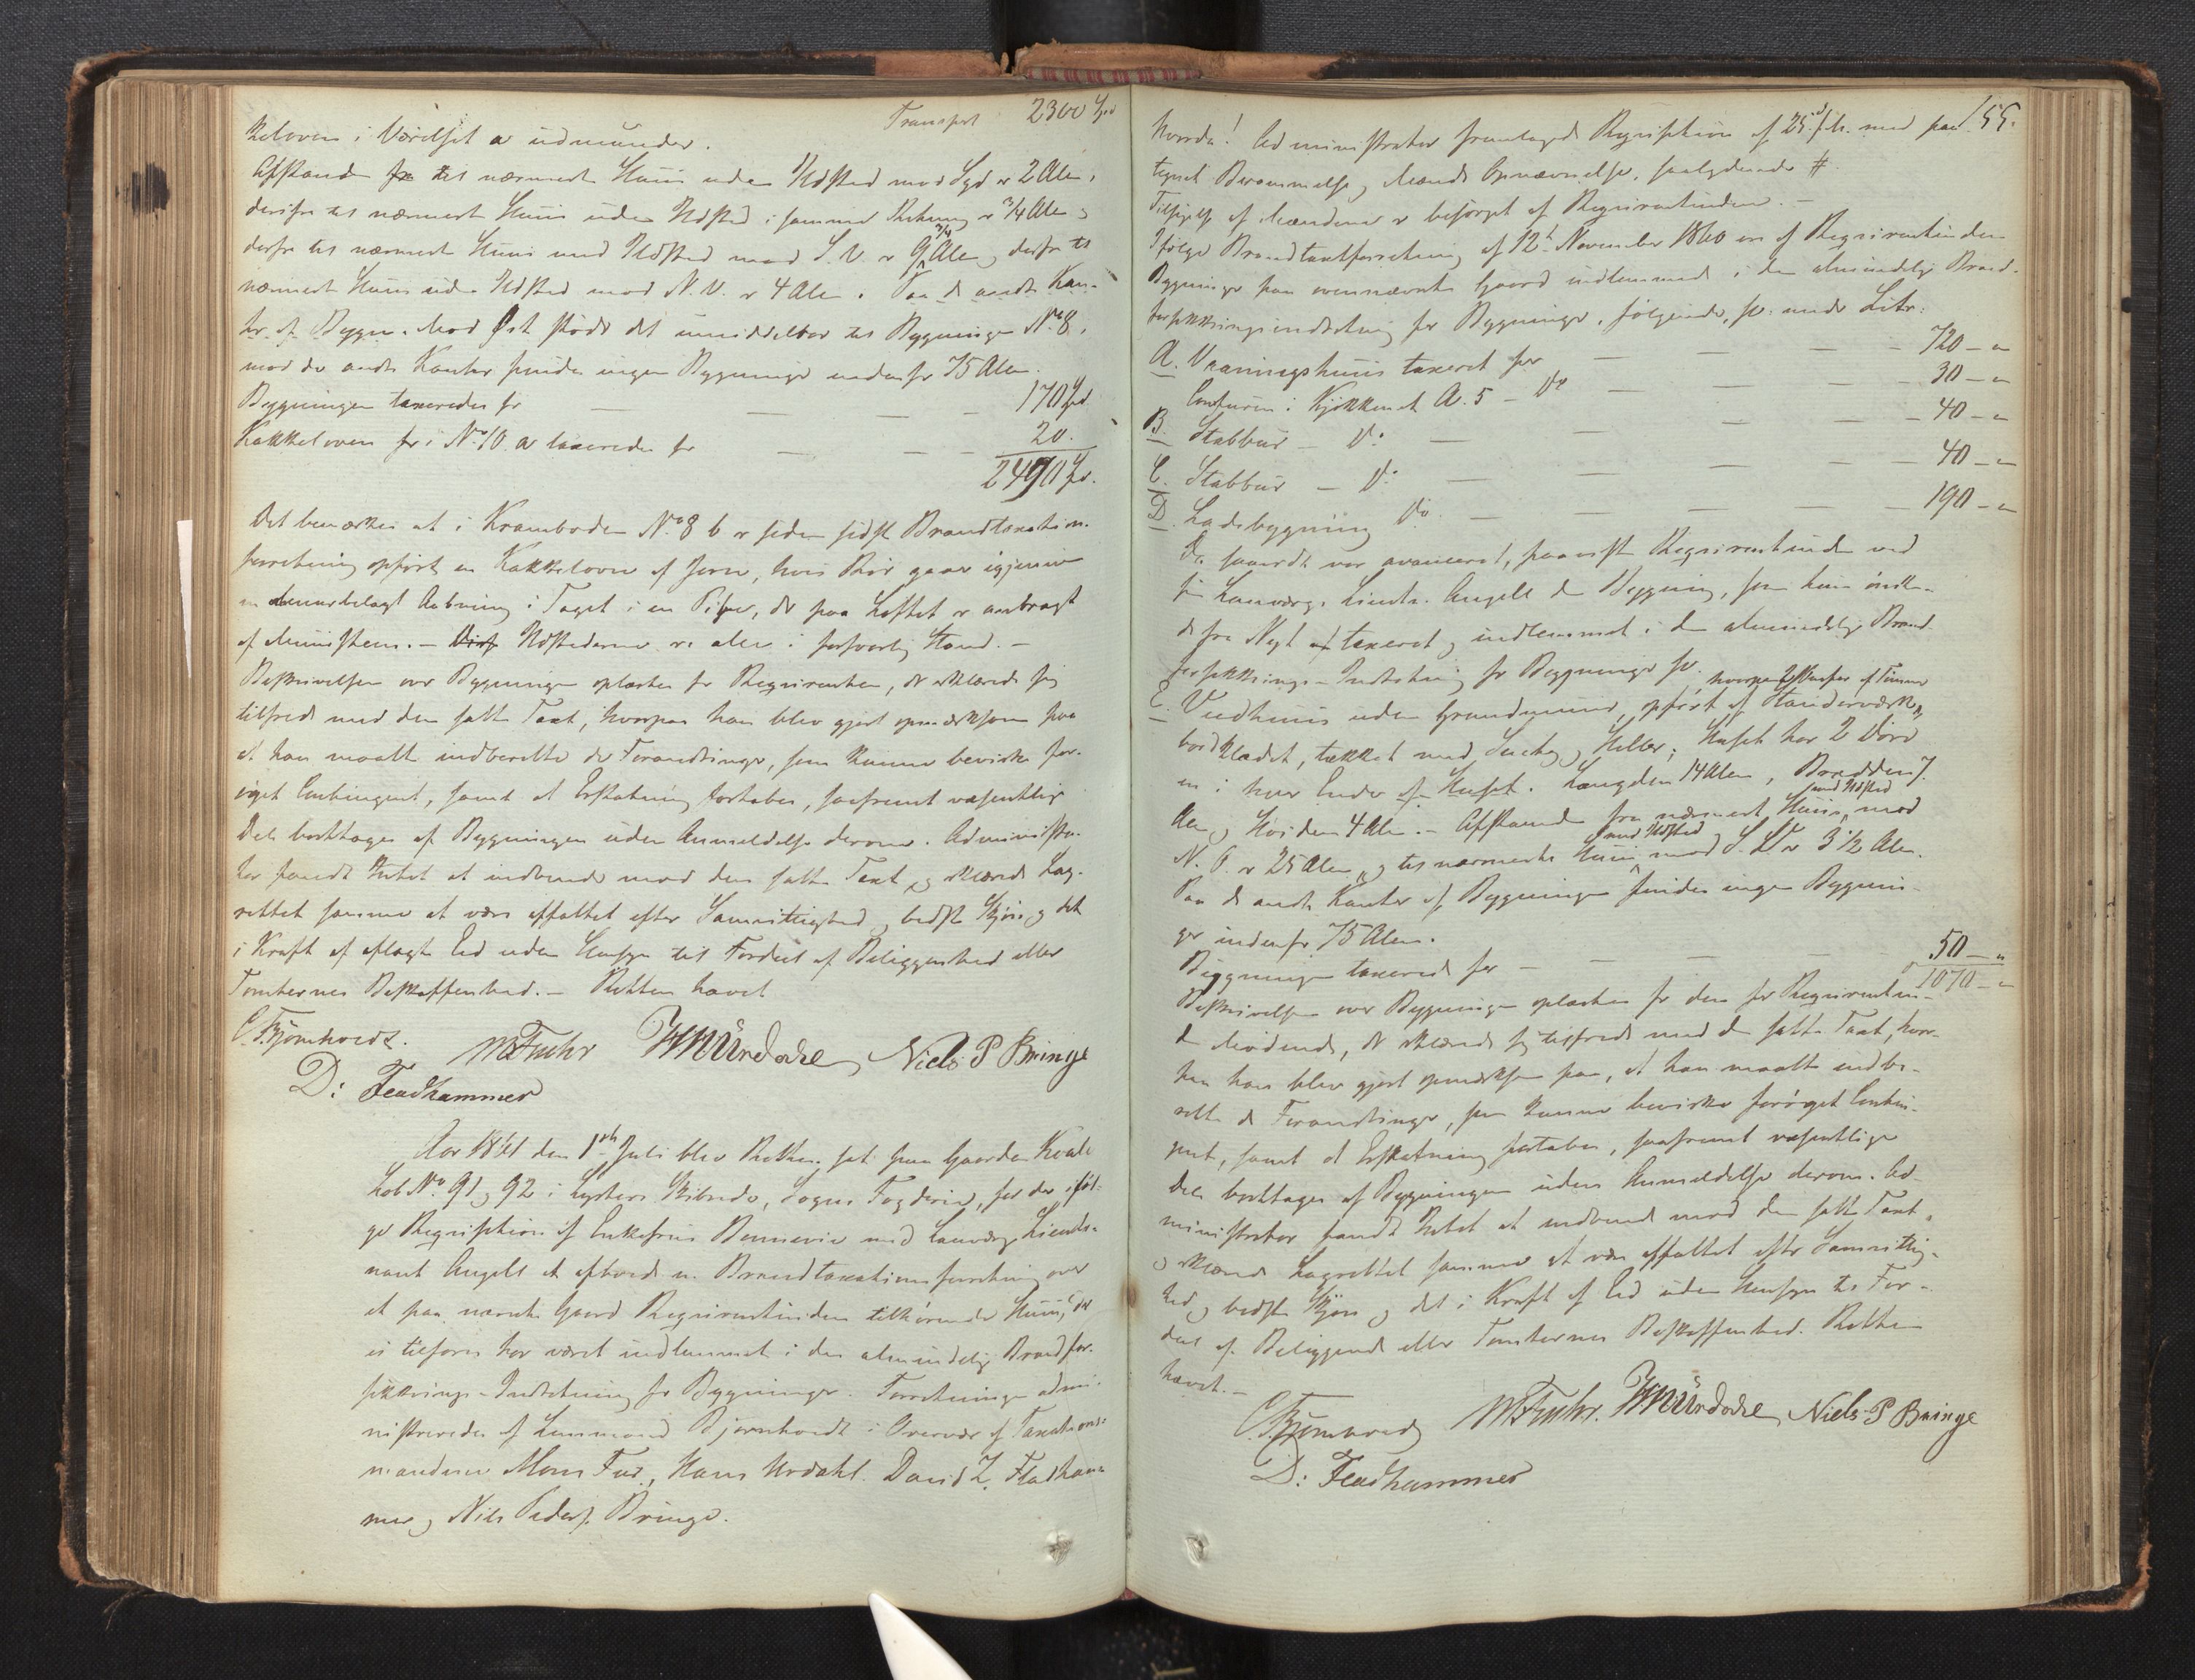 Transport 2300 Spd
keloven i Værelset a udmunder.
Afstanden fra til nærmeste Huus uden Ildsted mod Syd er 2 Alen,
derfra til nærmeste Huus uden Ildsted i samme Retning er 3/4 Alen,
derfra til nærmeste Huus med Ildsted mod S.V. er 9 3/4 Alen, derfra til
nærmeste Huus uden Ildsted mod N.V. er 4 Alen. Paa de andre Kan-
ter af Bygn. Mod Øst støder det umiddelbar til Bygningen No 8,
mod de andre Kanter findes ingen Bygninger indenfor 75 Alen.
Bygningen taxeredes for — — — 170 Spd
Kakkeloven for i No 10. a taxeredes for — — — 20.
2490 Spd.
Det bemærkes at i Kramboden No 8 b er siden sidste Brandtaxations
forretning opført en Kakkelovn af Jern, hvis Rør gaaer igjennem
en steenbelagt Aabning i Taget i en Pibe, der paa Loftet er anbragt
af Muursteen. — Ildstederne er alle i forsvarlig Stand. —
Beskrivelsen over Bygningen oplæstes for Reqvirenten, der erklærede sig
tilfreds med den satte Taxt, hvorpaa han blev gjort opmærksom paa
at han maatte indberette de Forandringer, som kunne bevirke for-
øget Contingent, samt at Erstatning fortabes, saafremt væsentlige
Dele borttages af Bygningen uden Anmeldelse derom. Administra-
tor fandt Intet at indvende mod den satte Taxt, og erklærede Lag-
rettet samme at være affattet efter Samvittighed og bedste Skjøn og det
i Kraft af aflagte Eed uden Hensyn til Fordeel af Beliggenhed eller
Tomternes Beskaffenhed. — Retten hævet
C. Bjørnhordt. M Fuhr H M Urdahl Niels P Bringe
D: Fladhammer
Aar 1861 den 1ste Juli blev Retten sat paa Gaarden Kvale
Lob No 91 og 92 i Lysters Skibrede, Sogns Fogderie, for der iføl-
ge Reqvisition af Enkefrue Bennevie med Laugværge Lieute-
nant Angell at afholde en Brandtaxationsforretning over
et paa nævnte Gaard Reqvirentinden tilhørende Huus, der
ei tilforn har været indlemmet i den almindelige Brandfor-
sikkrings-Indretning for Bygninger. Forretningen admi-
nistreredes af Lensmand Bjørnhordt i Overvær af Taxations-
mændene Mons Fur, Hans Urdahl. David Z. Fladham-
mer og Niels Peders. Bringe.
155.
Hvorda! Administrator fremlagde Reqvisition af 25 f.M. med paa-
tegnet Berammelse og Mænds Opnævnelse, saalydende #.
Tilsigelse af Mændene er besørget af Reqvirentinden. —
Ifølge Brandtaxtforretning af 12te November 1860 ere af Reqvirentindens
Bygninger paa ovennævnte Gaard indlemmede i den almindelige Brand-
forsikkringsindretning for Bygninger, følgende, sc: under Litr:
A. Vaaningshuus taxeret for — — — 720 — "
Comfuren i Kjøkkenet A. 5 — Do — — 30 — "
B. Stabbur — Do — — — 40 — "
C. Stabbur — Do — — — 40 — "
D. Ladebygning Do — — — 190 — "
Da saavidt var avanceret, paaviste Reqvirentinden ved
sin Laugværge Lieutn. Angell den Bygning, som hun ønske-
de fra Nyt af taxeret og indlemmet i den almindelige Brand-
forsikkrings-Indretning for Bygninger sc:
E. Vedhuus uden Grundmuur, opført af Standerværk, hvorpaa af Tømmer
bordklædt, tækket med Sudtag og Heller; Huset har 2 Døre
en i hver Ende af Huset. Længden 14 Alen, Bredden 7
Alen og Høiden 4 Alen. — Afstanden fra nærmeste Huus med Ildsted mod
N.O. er 25 Alen, og til nærmeste Huus med Ildsted mod S.V. er 3 1/2 Alen.
Paa de andre Kanter af Bygningen findes ingen Bygnin-
ger indenfor 75 Alen.
Bygningen taxerede for — — — 50 — "
1070 — "
Beskrivelsen over Bygningen oplæstes for den for Reqvirentin-
den Mødende, der erklærede sig tilfreds med den satte Taxt, hvor-
paa han blev gjort opmærksom paa, at han maatte indbe-
rette de Forandringer, som kunne bevirke forøget Contin-
gent, samt at Erstatning fortabes, saafremt væsentlige
Dele borttages af Bygningen uden Anmeldelse derom. Ad-
ministrator fandt Intet at indvende mod den satte Taxt,
og erklærede Lagrettet samme at være affattet efter Samvittig-
hed og bedste Skjøn og det i Kraft af Eed uden Hensyn til For-
deel af Beliggende eller Tomternes Beskaffenhed. Retten
hævet. —
C. Bjørnhordt M Fuhr. H M Urdahl Niels P Bringe
D: Fladhammer